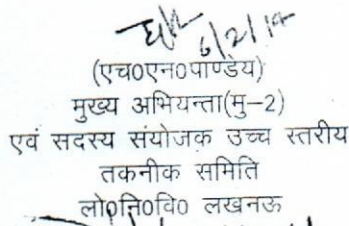 6/2/14
(एच0एन0पाण्डेय)
मुख्य अभियन्ता(मु–2)
एवं सदस्य संयोजक उच्च स्तरीय
तकनीक समिति
लो0नि0वि0 लखनऊ